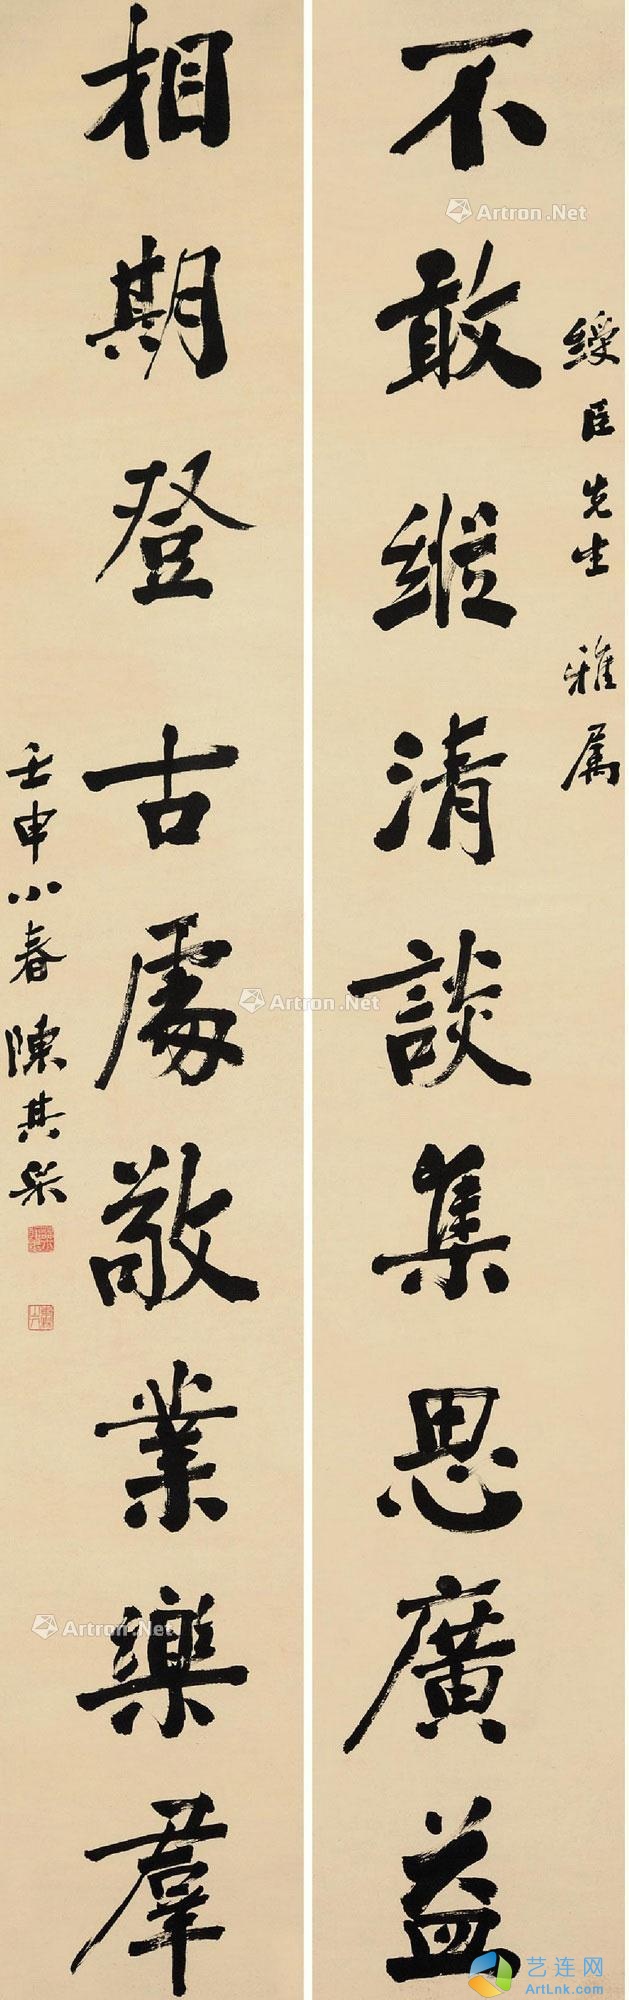 綬臣先生 雅属
不敢縱清談集思廣益
相期登古處敬業樂羣
壬申小春 陳其采
Artron.Net
Artron.Net
Artron.Net
艺连网
ArtLnk.com